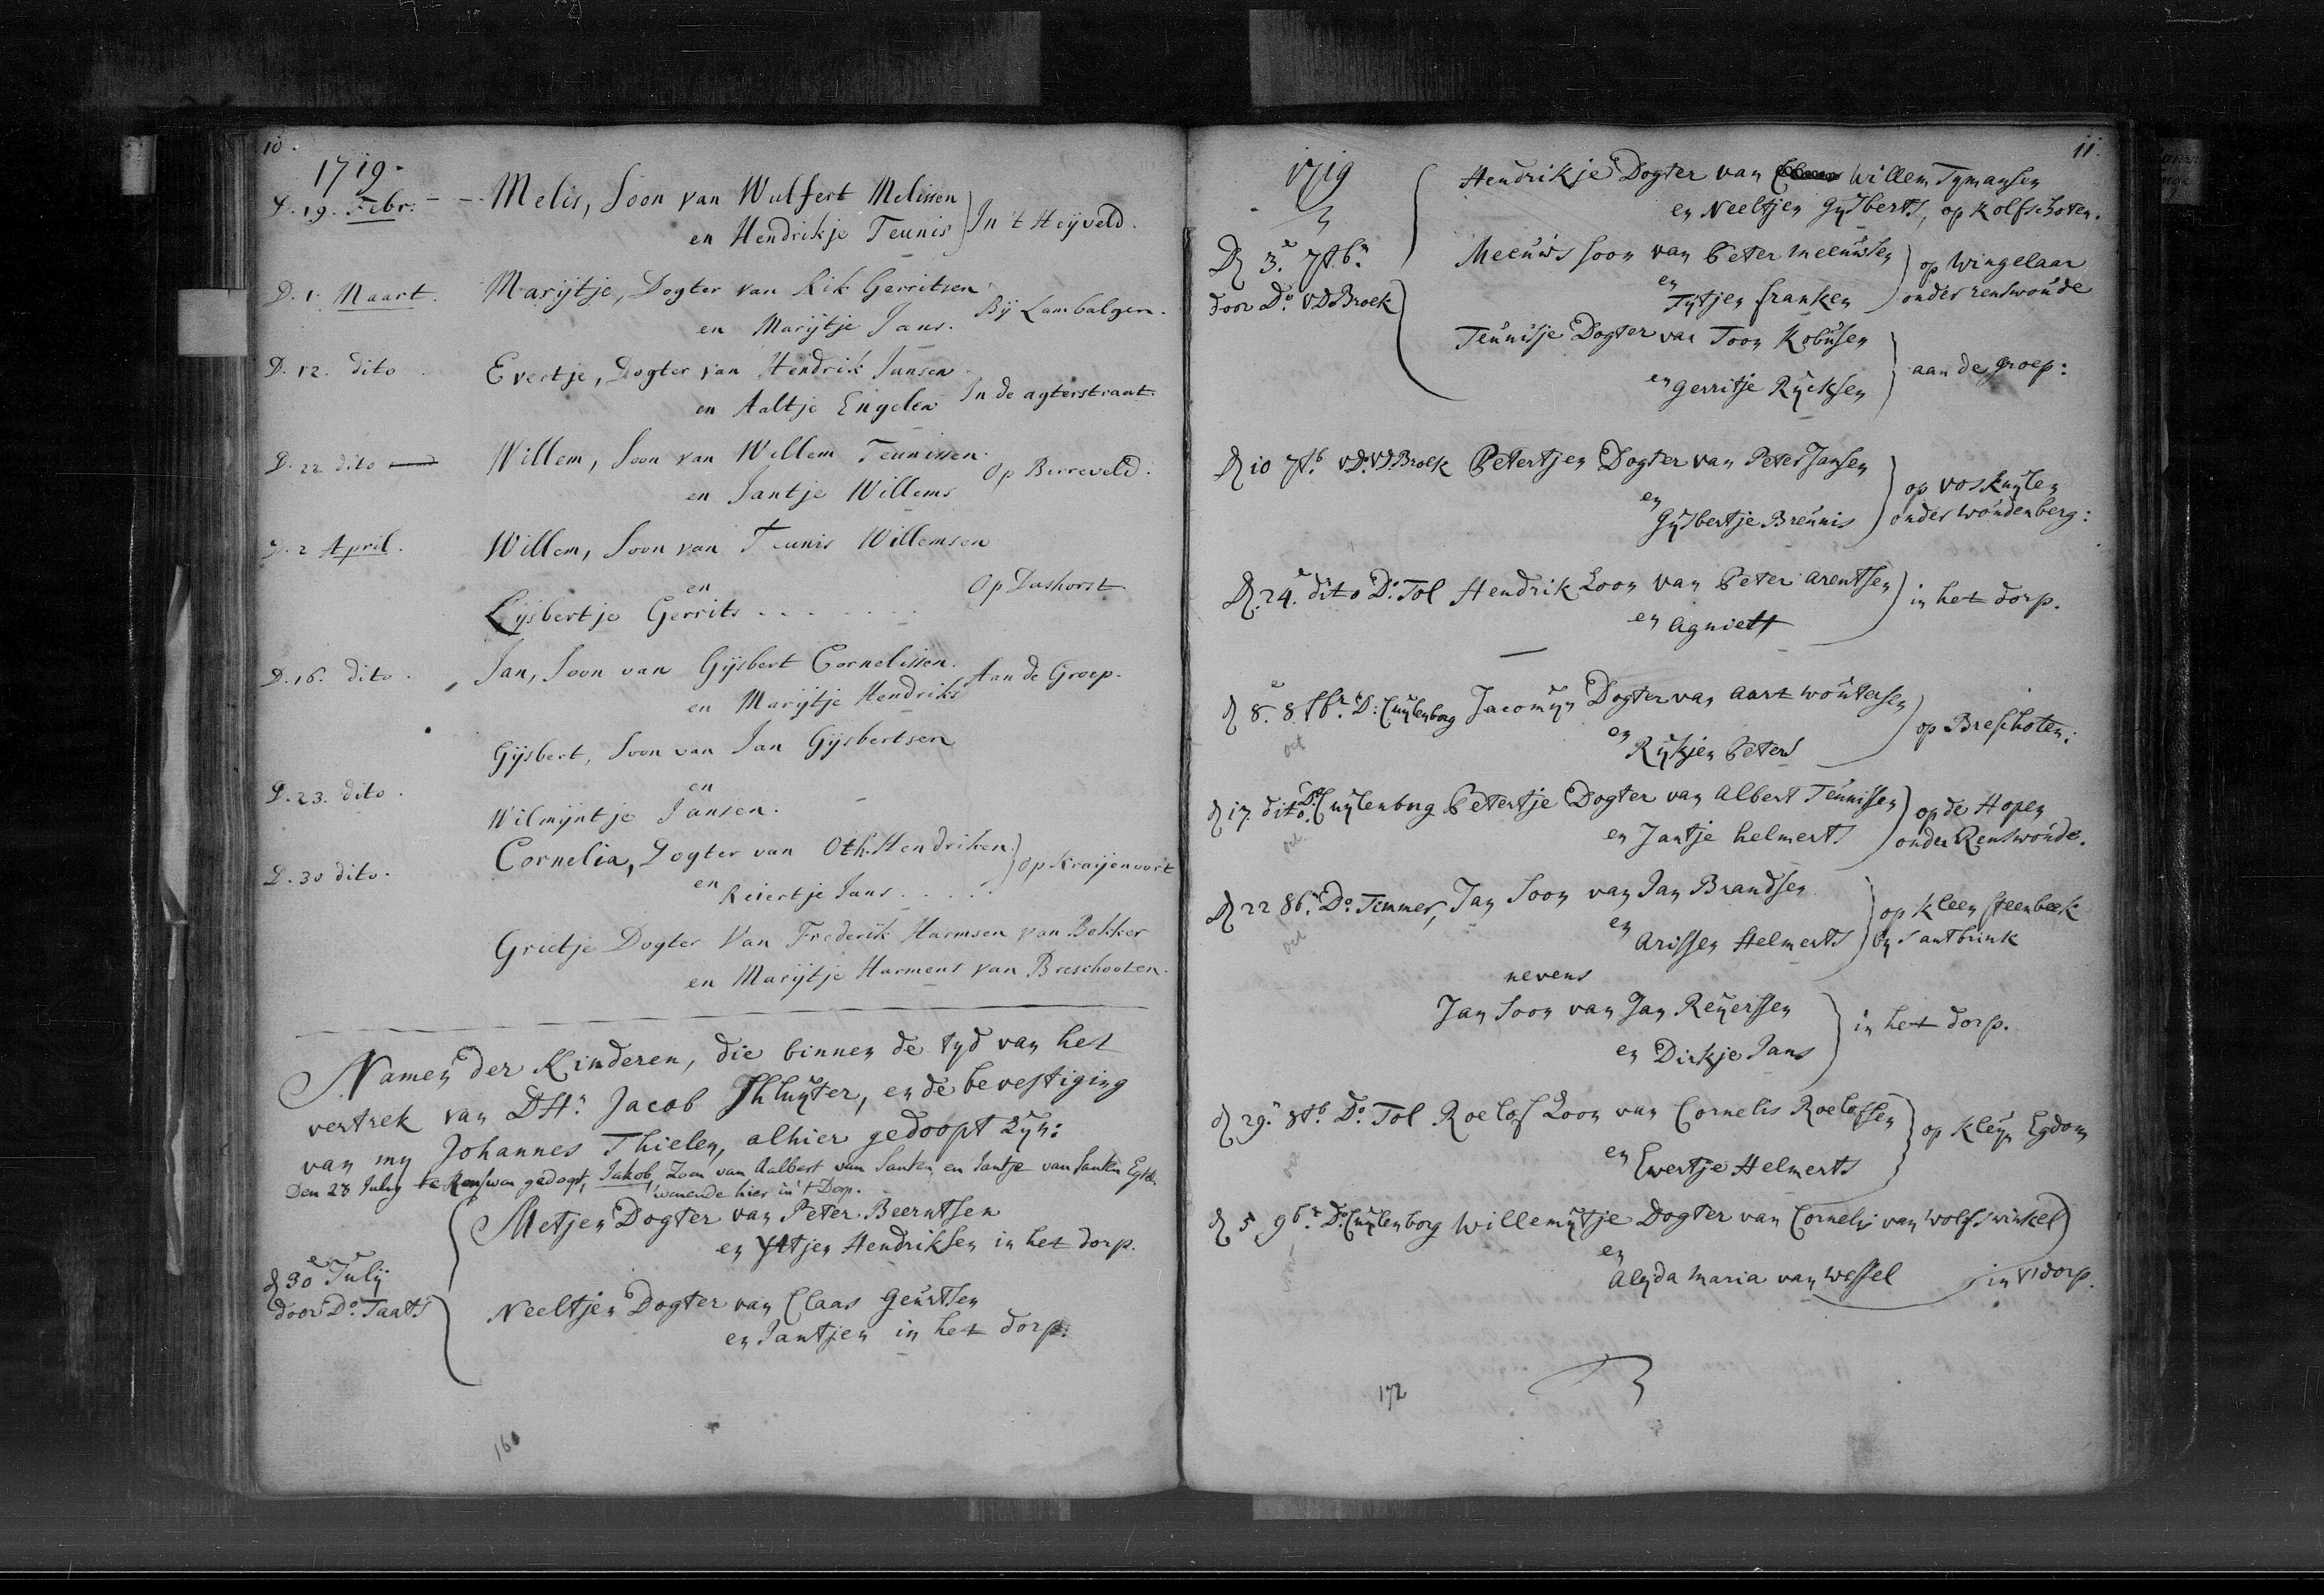 10.
1719.
D. 19. Febr. - - Melis, Soon van Wulfert Melissen
en Hendrikje Teunis In 't Heyveld.
D. 1. Maart. Marijtje, Dogter van Rik Gerritsen
en Marijtje Jans. Bij Lambalgen.
D. 12. dito Evertje, Dogter van Hendrik Jansen
en Aaltje Engelen In de agterstraat.
D. 22 dito Willem, Soon van Willem Teunissen.
en Jantje Willems Op Birreveld.
D. 2 April. Willem, Soon van Teunis Willemsen
en
Lijsbertje Gerrits . . . . . . . Op Dashorst
D. 16. dito. Jan, Soon van Gijsbert Cornelissen.
en Marijtje Hendriks Aan de Groep.
Gijsbert, Soon van Jan Gijsbertsen
D. 23. dito. en
Wilmijntje Jansen.
Cornelia, Dogter van Oth. Hendriken.
D. 30 dito. en Reiertje Jans . . . . . Op Kraijenoort
Grietje Dogter Van Frederik Harmsen van Bekker
en Marijtje Harmens van Breschooten.
Namen der Kinderen, die binnen de tyd van het
vertrek van DHr. Jacob Shluyter, en de bevestiging
van my Johannes Thielen, alhier gedoopt zyn:
Den 28 July te Renswou gedopt, Jakob, Zoon van Aalbert van Santen en Jantje van Santen Egte.
wonende hier in 't Dorp.
Metjen Dogter van Peter Beerntsen
en Ytjen Hendriksen in het dorp.
d 30e July
door Do. Taats Neeltjen Dogter van Claas Geurtsen
en Jantjen in het dorp.
160
11.
1719
Hendrikje Dogter van Willem Tymansen
en Neeltjen Gysberts, op Kolfschoten.
D 3e. 7tbr. Meeuws soon van Peter meeuwsen op Wingelaar
en
door Do. VD Broek Tytjen franken onder renswoude
Teunisje Dogter van Toon Kobusen
en Gerritje Rycksen aan de groep:
D 10 7tb. v. D. VD. Broek Petertjen Dogter van Peter Jansen
en op voskuylen
Gysbertje Breunis onder woudenberg:
D. 24e. dito Do. Tol Hendrik Zoon van Peter arentsen in het dorp.
en agniett
d 8e. 8tbr. D: Cuylenborg Jacomyn Dogter van aart woutersen
oct en op Breschoten:
Rykjen Peters
d 17 dito. Do. Cuylenborg Petertje Dogter van albert Teunissen op de Hopen
oct. en Jantje helmerts onder Renswoude.
D 22 8br. Do. Timmer, Jan Soon van Jan Brandsen op kleen steenbeek
oct en
arissen Helmerts by Santbrink
nevens
Jan Soon van Jan Reyerssen in het dorp.
en Dirkje Jans
d 29e 8tb. Do. Tol Roelof Zoon van Cornelis Roelofsen op kleyn Egdom
oct en
Evertje Helmerts
d 5 9br. Do. Cuylenborg Willemytje Dogter van Cornelis van wolfswinkel
nov en
Alyda maria van wessel in 't dorp.
172